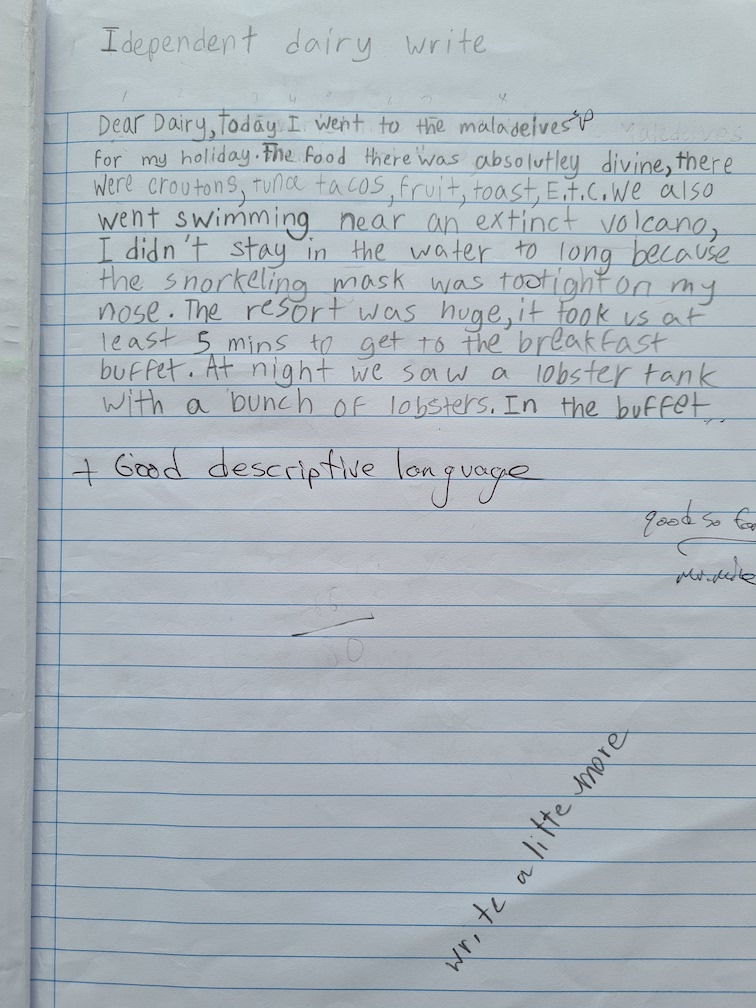 Idependent dairy write
Dear Dairy, Today I went to the maladeives
for my holiday. The food there was absolutley divine, there
were croutons, tuna tacos, fruit, toast, E.t.c. We also
went swimming near an extinct volcano,
I didn't stay in the water to long because
the snorkeling mask was too tight on my
nose. The resort was huge, it took us at
least 5 mins to get to the breakfast
buffet. At night we saw a lobster tank
with a bunch of lobsters. In the buffet
+ Good descriptive language
good so far
write a litte more